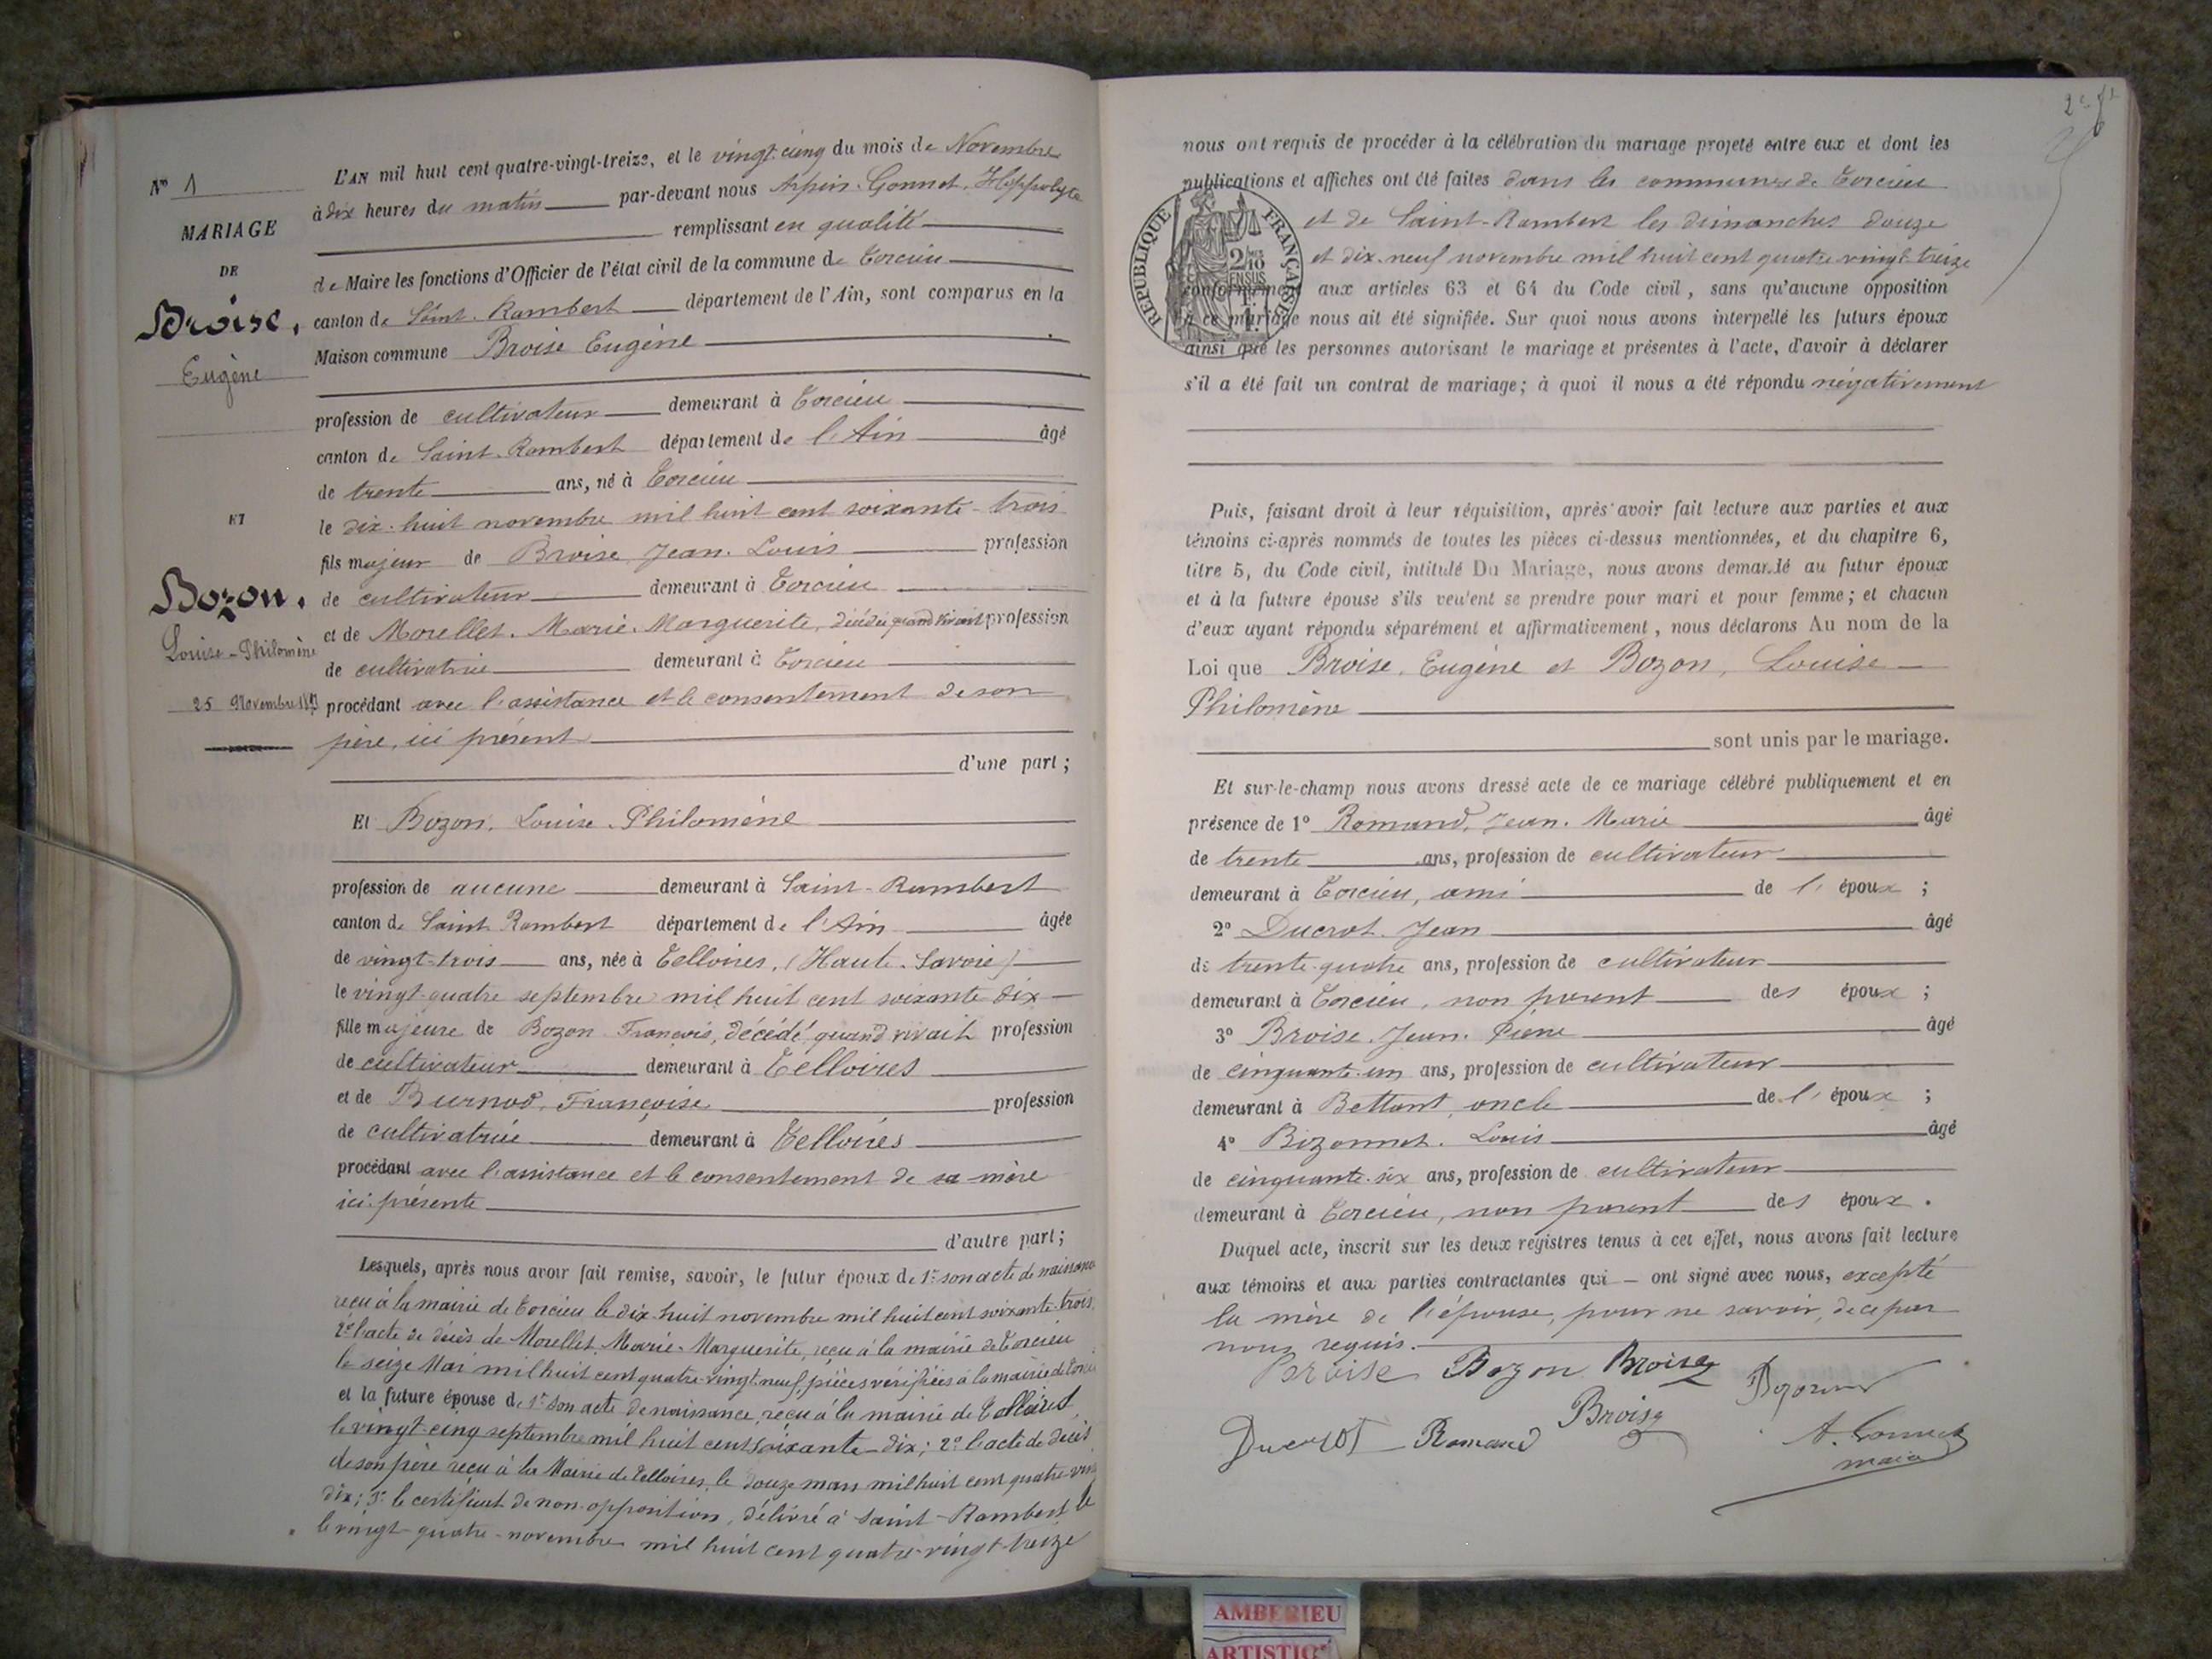 Nº 1
MARIAGE
DE
Broise,
Eugène
ET
Bozon.
Louise-Philomène
25 Novembre 1893
L'AN mil huit cent quatre-vingt-treize, et le vingt-cinq du mois de Novembre
à dix heures du matin par-devant nous Arpin-Gonnet, Hippolyte
remplissant en qualité
de Maire les fonctions d'Officier de l'état civil de la commune de Torcieu
canton de Saint-Rambert département de l'Ain, sont comparus en la
Maison commune Broise Eugène
profession de cultivateur demeurant à Torcieu
canton de Saint-Rambert département de l'Ain âgé
de trente ans, né à Torcieu
le dix-huit novembre mil huit cent soixante-trois
fils majeur de Broise, Jean-Louis profession
de cultivateur demeurant à Torcieu
et de Morellet, Marie-Marguerite, décédée quand vivait profession
de cultivatrice demeurant à Torcieu
procédant avec l'assistance et le consentement de son
père, ici présent
d'une part ;
Et Bozon, Louise-Philomène
profession de aucune demeurant à Saint-Rambert
canton de Saint-Rambert département de l'Ain âgée
de vingt-trois ans, née à Talloires, (Haute-Savoie)
le vingt-quatre septembre mil huit cent soixante-dix
fille majeure de Bozon François, décédé, quand vivait profession
de cultivateur demeurant à Talloires
et de Burnod, Françoise profession
de cultivatrice demeurant à Talloires
procédant avec l'assistance et le consentement de sa mère
ici présente
d'autre part ;
Lesquels, après nous avoir fait remise, savoir, le futur époux de 1º son acte de naissance
reçu à la mairie de Torcieu le dix-huit novembre mil huit cent soixante-trois;
2º l'acte de décès de Morellet, Marie-Marguerite, reçu à la mairie de Torcieu
le seize Mai mil huit cent quatre-vingt-neuf, pièces vérifiées à la mairie de Torcieu
et la future épouse de 1º son acte de naissance, reçu à la mairie de Talloires,
le vingt-cinq septembre mil huit cent soixante-dix; 2º l'acte de décès
de son père reçu à la Mairie de Talloires, le douze mars mil huit cent quatre-vingt
dix; 3º le certificat de non-opposition, délivré à Saint-Rambert le
le vingt-quatre-novembre mil huit cent quatre-vingt-treize
nous ont requis de procéder à la célébration du mariage projeté entre eux et dont les
publications et affiches ont été faites dans les communes de Torcieu
et de Saint-Rambert les dimanches douze
et dix-neuf novembre mil huit cent quatre-vingt-treize
RÉPUBLIQUE FRANÇAISE
2/10 EN SUS
conformément aux articles 63 et 64 du Code civil, sans qu'aucune opposition
à ce mariage nous ait été signifiée. Sur quoi nous avons interpellé les futurs époux
ainsi que les personnes autorisant le mariage et présentes à l'acte, d'avoir à déclarer
s'il a été fait un contrat de mariage; à quoi il nous a été répondu négativement
Puis, faisant droit à leur réquisition, après avoir fait lecture aux parties et aux
témoins ci-après nommés de toutes les pièces ci-dessus mentionnées, et du chapitre 6,
titre 5, du Code civil, intitulé Du Mariage, nous avons demandé au futur époux
et à la future épouse s'ils veulent se prendre pour mari et pour femme; et chacun
d'eux ayant répondu séparément et affirmativement, nous déclarons Au nom de la
Loi que Broise, Eugène et Bozon, Louise-
Philomène
sont unis par le mariage.
Et sur-le-champ nous avons dressé acte de ce mariage célébré publiquement et en
présence de 1º Romand, Jean-Marie âgé
de trente ans, profession de cultivateur
demeurant à Torcieu, ami de l'époux ;
2º Ducrot Jean âgé
de trente-quatre ans, profession de cultivateur
demeurant à Torcieu, non parent des époux ;
3º Broise, Jean-Pierre âgé
de cinquante-un ans, profession de cultivateur
demeurant à Bettant, oncle de l'époux ;
4º Bizonnet, Louis âgé
de cinquante-six ans, profession de cultivateur
demeurant à Torcieu, non parent des époux.
Duquel acte, inscrit sur les deux registres tenus à cet effet, nous avons fait lecture
aux témoins et aux parties contractantes qui ont signé avec nous, excepté
la mère de l'épouse, pour ne savoir, de ce par
nous requis.
Broise Bozon Broise
Ducrot Romand Broise
maire
AMBERIEU
ARTISTIQ